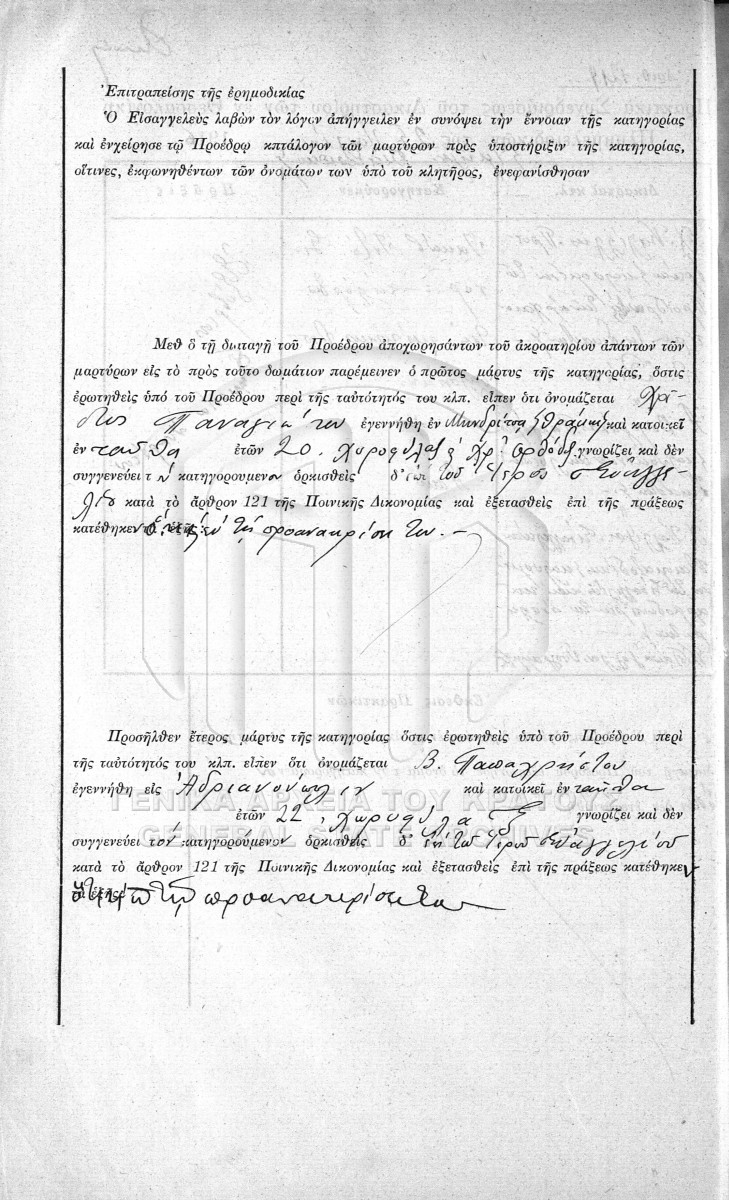 Ἐπιτραπείσης τῆς ἐρημοδικίας
Ὁ Εἰσαγγελεὺς λαβὼν τὸν λόγων ἀπήγγειλεν ἐν συνόψει τὴν ἔννοιαν τῆς κατηγορίας
καὶ ἐνχείρησε τῷ Προέδρῳ κπτάλογον τῶι μαρτύρων πρὸς ὑποστήριξιν τῆς κατηγορίας,
οἵτινες, ἐκφωνηθέντων τῶν ὀνομάτων των ὑπὸ τοῦ κλητῆρος, ἐνεφανίσθησαν
Μεθ ὃ τῇ διαταγῇ τοῦ Προέδρου ἀποχωρησάντων τοῦ ἀκροατηρίου ἁπάντων τῶν
μαρτύρων εἰς τὸ πρὸς τοῦτο δωμάτιον παρέμεινεν ὁ πρῶτος μάρτυς τῆς κατηγορίας, ὅστις
ἐρωτηθεὶς ὑπό τοῦ Προέδρου περὶ τῆς ταὐτότητός του κλπ. εἶπεν ὅτι ὀνομάζεται Χρῆ-
στος Παναγιώτου ἐγεννήθη ἐν Μανδρίτσα Θράκης καὶ κατοικεῖ
ἐνταῦθα ἐτῶν 20. χωροφύλαξ Χρ. Ὀρθόδ. γνωρίζει καὶ δὲν
συγγενεύει τὸν κατηγορουμενον ὁρκισθεὶς ἐπὶ τοῦ Ἱεροῦ Εὐαγγε-
λίου κατὰ τὸ ἄρθρον 121 τῆς Ποινικῆς Δικονομίας καὶ ἐξετασθεὶς ἐπὶ τῆς πράξεως
κατέθηκεν ὅ,τι ἐν τῇ προανακρίσει του.—
Προσῆλθεν ἕτερος μάρτυς τῆς κατηγορίας ὅστις ἐρωτηθεὶς ὑπὸ τοῦ Προέδρου περὶ
τῆς ταὐτότητός του κλπ. εἶπεν ὅτι ὀνομάζεται Β. Παπαχρήστου
ἐγεννήθη εἰς Ἀδριανούπολιν καὶ κατοικεῖ ἐνταῦθα
ἐτῶν 22, χωροφύλαξ γνωρίζει καὶ δὲν
συγγενεύει τὸν κατηγορούμενον ὁρκισθεὶς ἐπὶ τοῦ Ἱεροῦ Εὐαγγελίου
κατὰ τὸ ἄρθρον 121 τῆς Ποινικῆς Δικονομίας καὶ ἐξετασθεὶς ἐπὶ τῆς πράξεως κατέθηκεν
τῇ προανακρίσει του
ΓΕΝΙΚΑ ΑΡΧΕΙΑ ΤΟΥ ΚΡΑΤΟΥΣ
GENERAL STATE ARCHIVES